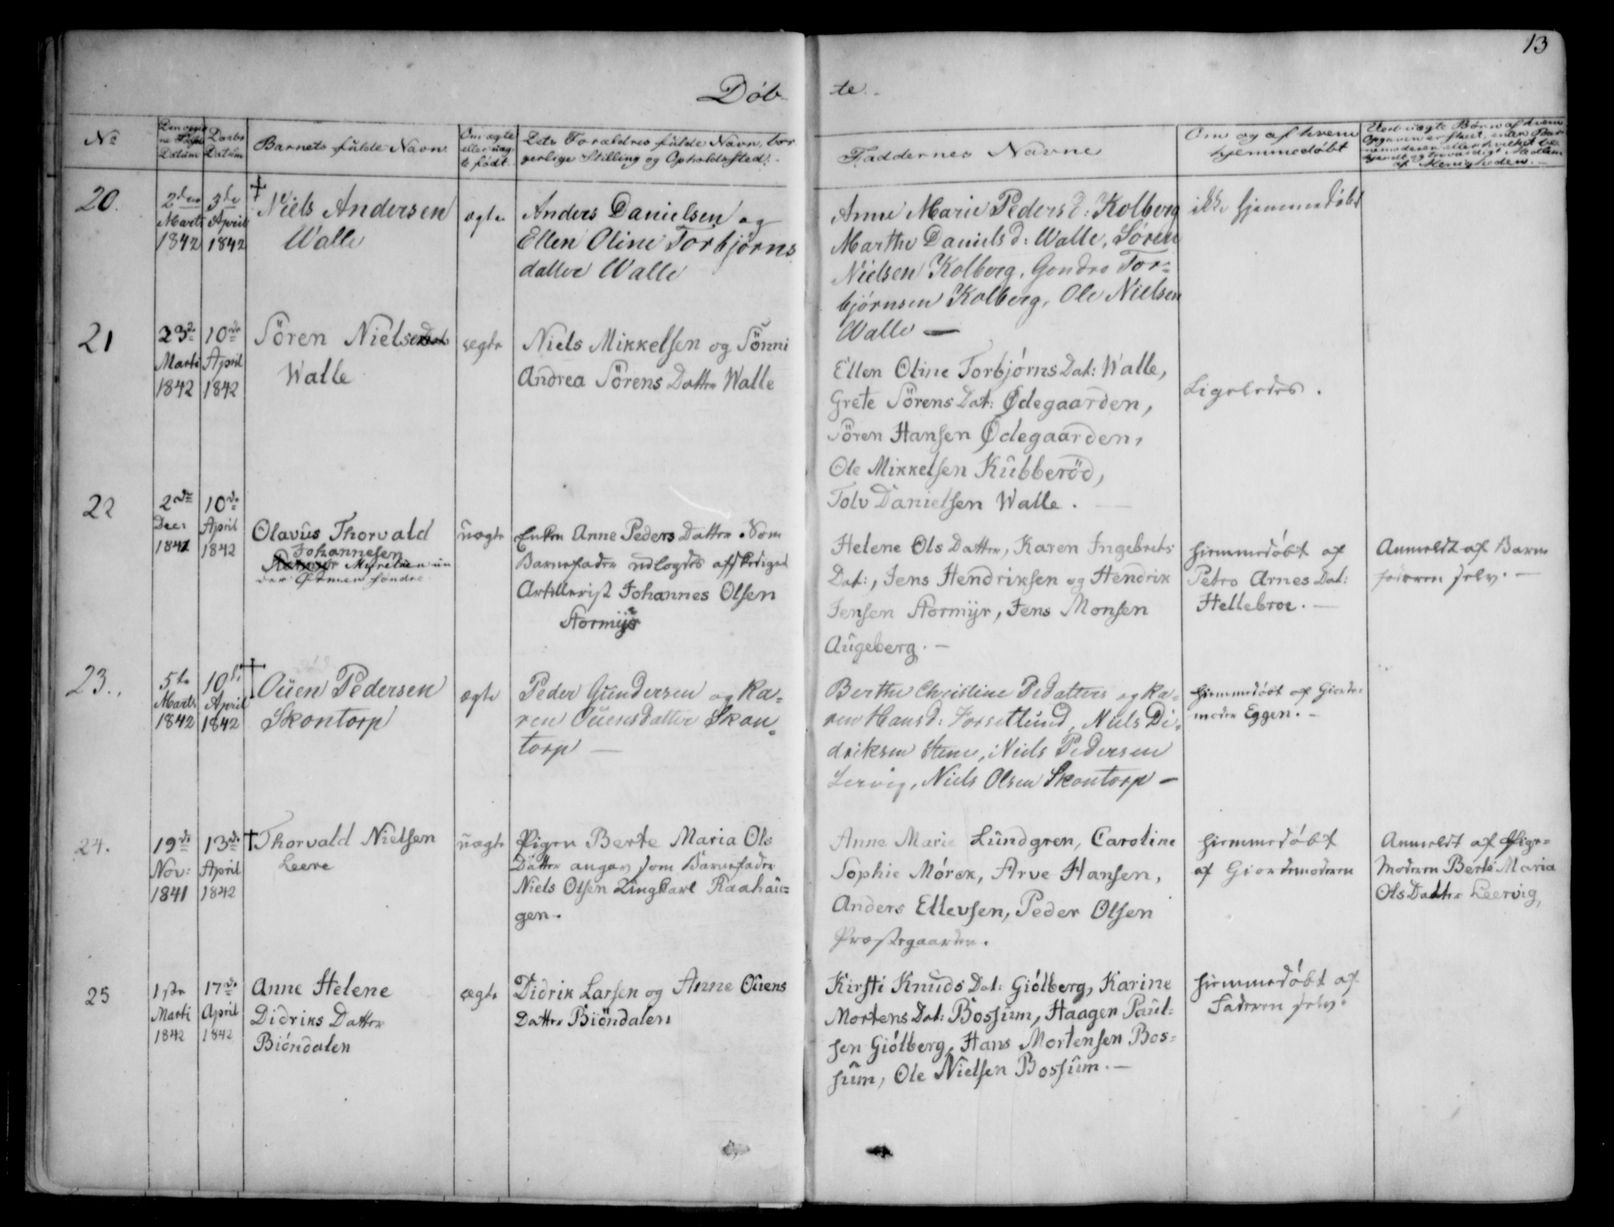 13
Døb- te.
No
Barnets fulde Navn.
Faddernes Navne
Om og af hvem
hjemmedøbt
20.
2den
Marts
1842
3die
April
1842
Niels Andersen
Walle
ægte
Anders Danielsen og
Ellen Oline Torbjørns
datter Walle
Anne Marie Pedersd: Kolberg
Marthe Danielsd: Walle, Søren
Nielsen Kolberg, Tor-
bjørnsen Kolberg, Ole Nielsen
Walle —
ikke hjemmedøbt
21
23de
Marts
1842
10de
April
1842
Sören Nielsen
Walle
ægte
Niels Mikkelsen og Sönni
Andrea Sörens Datter Walle
Ellen Oline Torbjørns Dat: Walle,
Grete Sörens Dat: Ødegaarden,
Sören Hansen Ødegaarden,
Ole Mikkelsen Kubberöd,
Tolv Danielsen Walle.
Ligeledes.
22
2den
Decr
1841
10de
April
1842
Olavus Thorvald
Johannesen
uægte
Enken Anne Peders Datter. Som
Barnefader udlagdes afskediget
Artillerist Johannes Olsen
Stormyr
Helene Ols Datter, Karen Ingebrets
Dat:, Jens Hendriksen og Hendrik
Jensen Stormyr, Jens Monsen
Augeberg.—
hjemmedøbt af
Petro Arnes Dat:
Hellebroe.—
Anmeldt af Barne
faderen selv.—
23.
5te
Marts
1842
10de
April
1842
Ouen Pedersen
Skontorp
ægte
Peder Gundersen og Ka-
ren Ouensdatter Skon-
torp —
Berthe Christine Pedatters og Ka-
ren Hansd: Forsetlund, Niels Di-
driksen Stene, Niels Pedersen
Lervig, Niels Olsen Skontorp —
hjemmedøbt af Giorde-
moder Eggen.—
24.
19de
Nov:
1841
13de
April
1842
Thorvald Nielsen
Leere
uægte
Pigen Berte Maria Ols
Datter angav som Barnefader
Niels Olsen Raahau-
gen.
Anne Marie Lundgren, Caroline
Sophie Mörck, Arve Hansen,
Anders Ellevsen, Peder Olsen
Præstegaarden.
hjemmedøbt
af Giordemoderen
Anmeldt af Pige-
Moderen Berte Maria
Ols Datter Leervig,
25
1ste
Marti
1842
17de
April
1842
Anne Helene
Didriks Datter
Biöndalen
ægte
Didrik Larsen og Anne Ouens
Datter Biöndalen
Kirsti Knuds Dat: Giölberg, Karine
Mortens Dat: Bossum, Haagen Paul-
sen Giölberg, Hans Mortensen Bos-
sum, Ole Nielsen Bossum.—
hjemmedøbt af
Faderen selv.